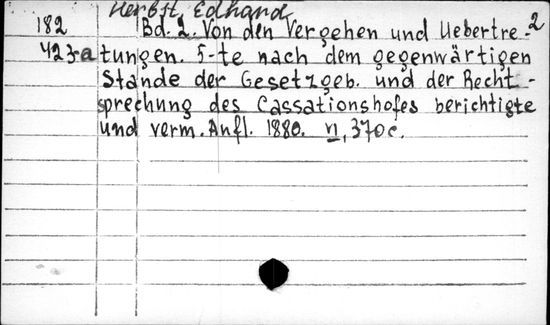 Herbst, Edhand 2
182 Bd. 2. Von den Vergehen und Uebertre-
423-a tungen. 5-te nach dem gegenwärtigen
Stande der Gesetzgeb. und der Recht-
sprechung des Cassationshofes berichtigte
und verm. Anfl. 1880. VI, 370 c.